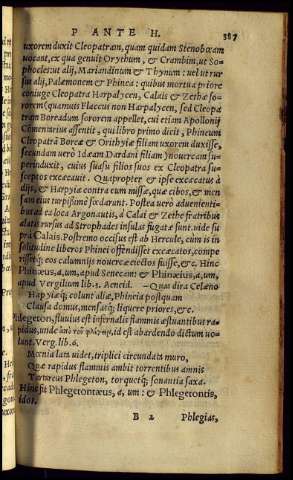 P ANTE H. 387
uxorem duxit Cleopatram, quam quidam Stenobœam
vocant, ex qua genuit Orythum, & Crambim, ut So-
phocles: ut alij, Mariandinum & Thynum: vel ut rur
sus alij, Palæmonem & Phinea: quibus mortua priore
coniuge Cleopatra Harpalycen, Calais & Zethæ so-
rorem (quamuis Flaccus non Harpalycen, sed Cleopa
tram Boreadum sororem appellet, cui etiam Apollonij
Cōmentarius assentit, qui libro primo dicit, Phineum
Cleopatrā Boreæ & Orithyiæ filiam uxorem duxisse,
secundam uerò Idæam Dardani filiam) nouercam su-
perinduxit, cuius suasu filios suos ex Cleopatra su-
sceptos excæcauit. Quapropter & ipse excæcatus à
dijs, & Harpyiæ contra eum missæ, quæ cibos, & men
sam eius turpissimè fœdarent. Postea uerò aduenienti-
bus ad ea loca Argonautis, à Calai & Zethe fratribus
alatis rursus ad Strophades insulas fugatæ sunt. uide su
pra Calais. Postremo occisus est ab Hercule, cùm is in
solitudine liberos Phinei offendisset excæcatos, compe
rissetq; eos calumnijs nouercæ eiectos fuisse, &c. Hinc
Phinæus, a, um, apud Senecam: & Phinæius, a, um,
apud Vergilium lib. 3. Aeneid. — Qua dira Celæno
Hapyiæq; colunt aliæ, Phineia postquam
Clausa domus, mensasq; liquere priores, &c.
Phlegeton, fluuius est infernalis flammis æstuantibus ra-
pidus, unde ἀπὸ τοῦ φλέγειν, id est ab ardendo dictum uo-
lunt. Verg. lib. 6.
Mœnia lata uidet, triplici circundata muro,
Quæ rapidus flammis ambit torrentibus amnis
Tartareus Phlegeton, torquetq; sonantia saxa.
Hinc fit Phlegetontæus, a, um: & Phlegetontis,
idos.
B 2 Phlegias,